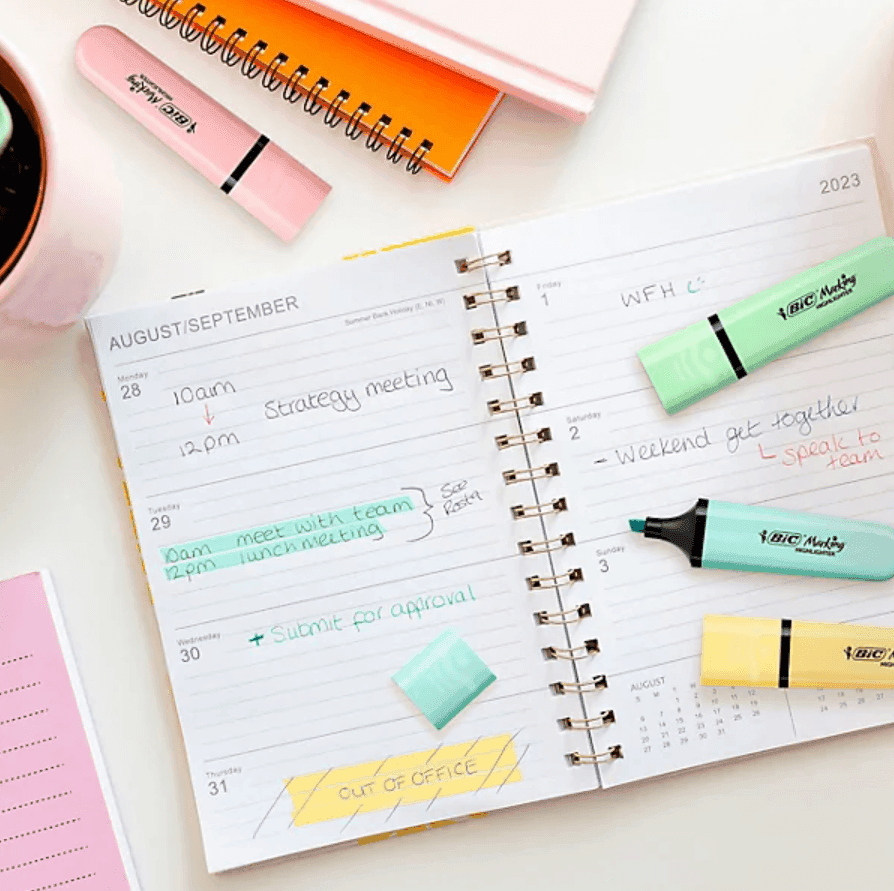 BIC Marking
HIGHLIGHTER
2023
AUGUST/SEPTEMBER
Summer Bank Holiday (E, NI, W)
Monday
28
10am
Strategy meeting
12pm
Tuesday
29
10am meet with team
12pm lunch meeting
See
Rosta
Wednesday
30
+ Submit for approval
Thursday
31
OUT OF OFFICE
Friday
1
WFH
BIC Marking
HIGHLIGHTER
Saturday
2
- Weekend get together
speak to
team
Sunday
3
BIC Marking
HIGHLIGHTER
BIC
AUGUST